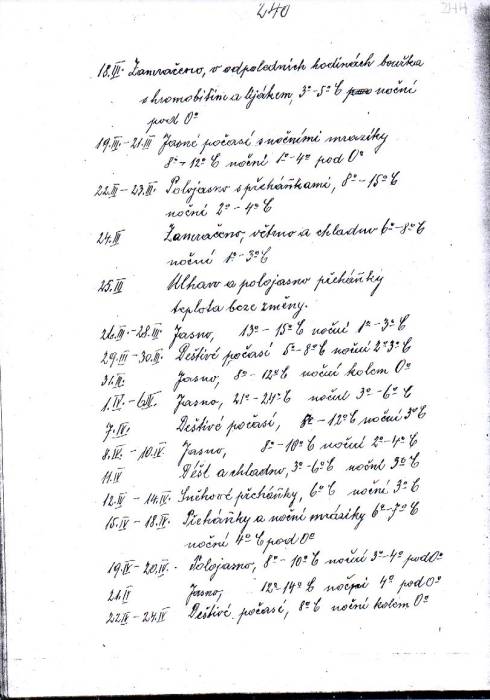 240
244
18.III. Zamračeno, v odpoledních hodinách bouřka
s hromobitím a lijákem, 3º-5ºC noční
pod 0º
19.III.-21.III Jasné počasí s nočními mrazíky
8º-12ºC noční 1º-4º pod 0º
22.III-23.III. Polojasno s přeháňkami, 8º-15ºC
noční 2º-4ºC
24.III Zamračeno, větrno a chladno 6º-8ºC
noční 1º-3ºC
25.III Mlhavo a polojasno přeháňky
teplota beze změny.
26.III.-28.III. Jasno, 13º-15ºC noční 1º-3ºC
29.III-30.III. Deštivé počasí 5º-8ºC noční 2º3ºC
31.III. Jasno, 8º-12ºC noční kolem 0º
1.IV.-6.IV. Jasno, 21º-24ºC noční 3º-6ºC
7.IV. Deštivé počasí, 8C-12ºC noční 3ºC
8.IV.-10.IV. Jasno, 8º-10ºC noční 2º-4ºC
11.IV Déšť a chladno, 3º-6ºC noční 3ºC
12.IV-14.IV. Sněhové přeháňky, 6ºC noční 3ºC
15.IV-18.IV. Přeháňky a noční mrazíky 6º-7ºC
noční 4ºC pod 0º
19.IV-20.IV. Polojasno, 8º-10ºC noční 3º-4º pod 0º
21.IV Jasno, 12º-14ºC noční 4º pod 0º
22.IV-24.IV Deštivé počasí, 8ºC noční kolem 0º